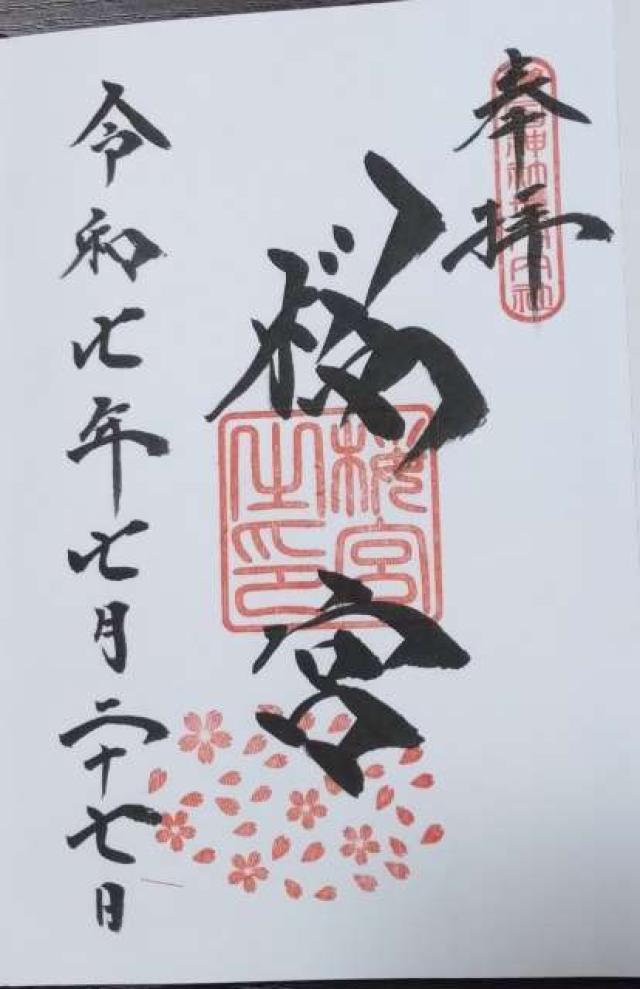 奉拝
桜宮
桜宮之印
令和七年七月二十七日